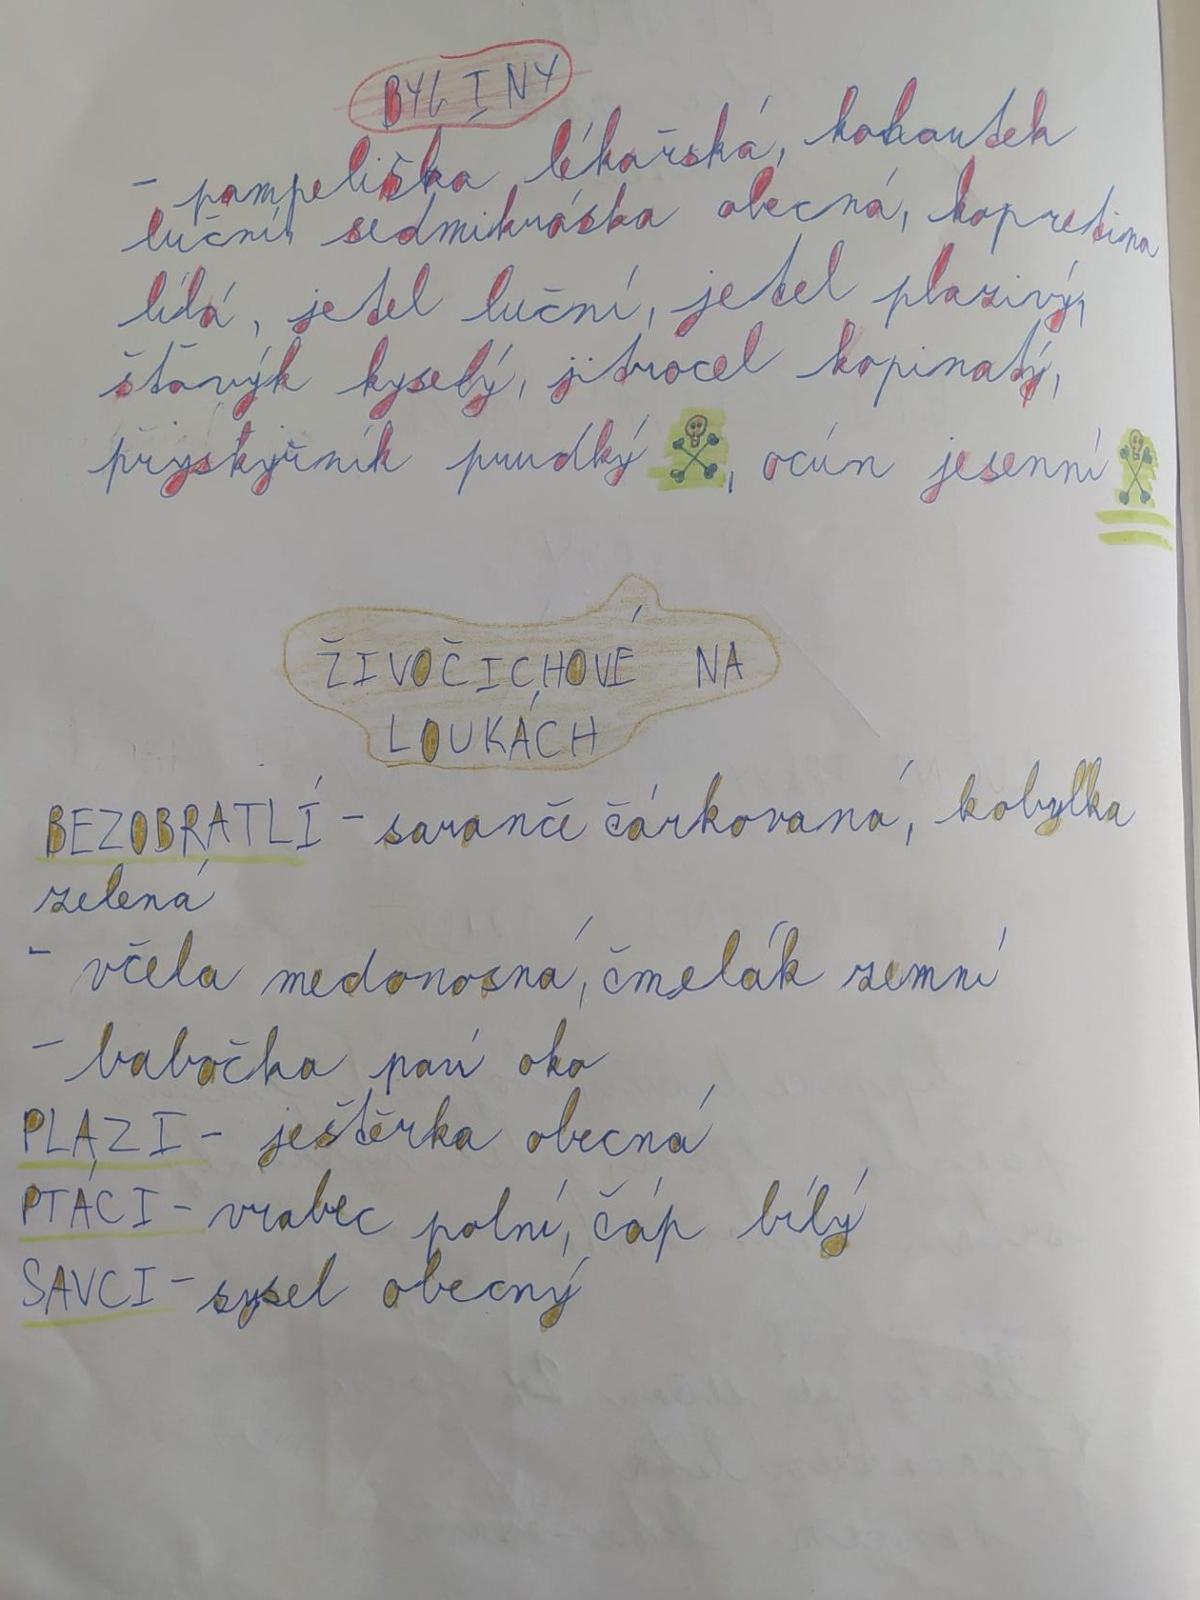 BYLINY
- pampeliška lékařská, kohoutek
luční, sedmikráska obecná, kopretina
bílá, jetel luční, jetel plazivý,
šťovýk kyselý, jitrocel kopinatý,
přyskyřník prudký, ocún jesenní
ŽIVOČICHOVÉ NA
LOUKÁCH
BEZOBRATLÍ - saranče čárkovaná, kobylka
zelená
- včela medonosná, čmelák zemní
- babočka paví oko
PLAZI - ještěrka obecná
PTÁCI - vrabec polní, čáp bílý
SAVCI - sysel obecný